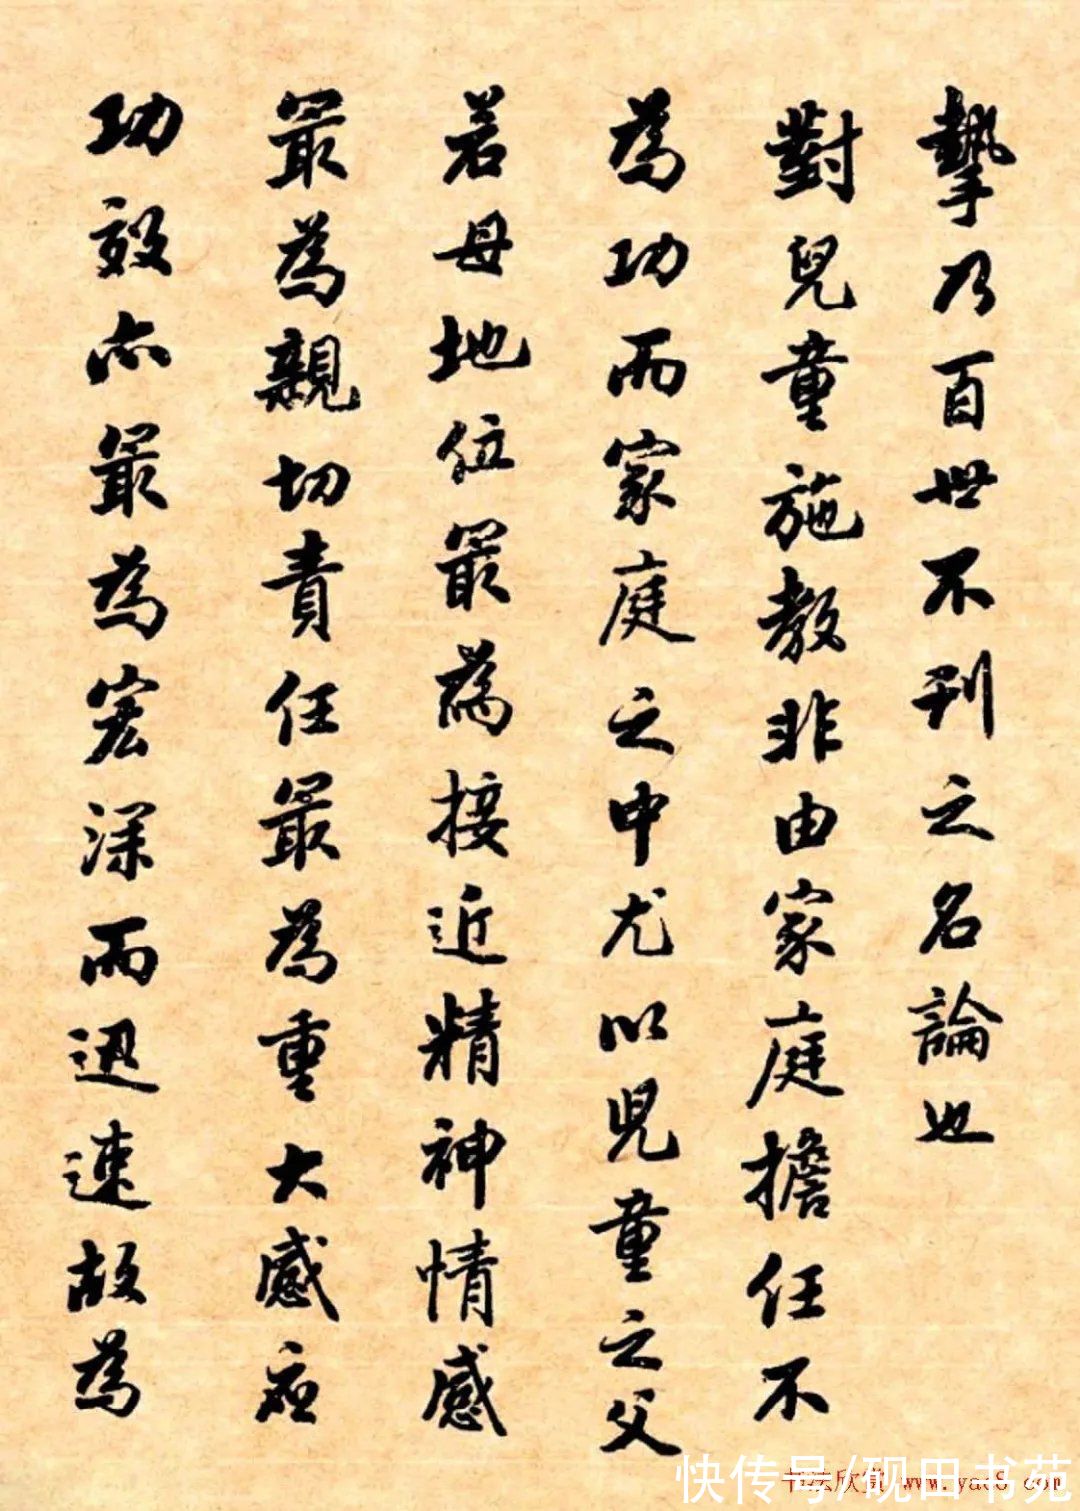 摯乃百世不刊之名論也
對兒童施教非由家庭擔任不
為功而家庭之中尤以兒童之父
若母地位最為接近精神情感
最為親切責任最為重大感应
功效亦最為宏深而迅速故為
书法欣赏 www.yac8.com
快传号/砚田书苑